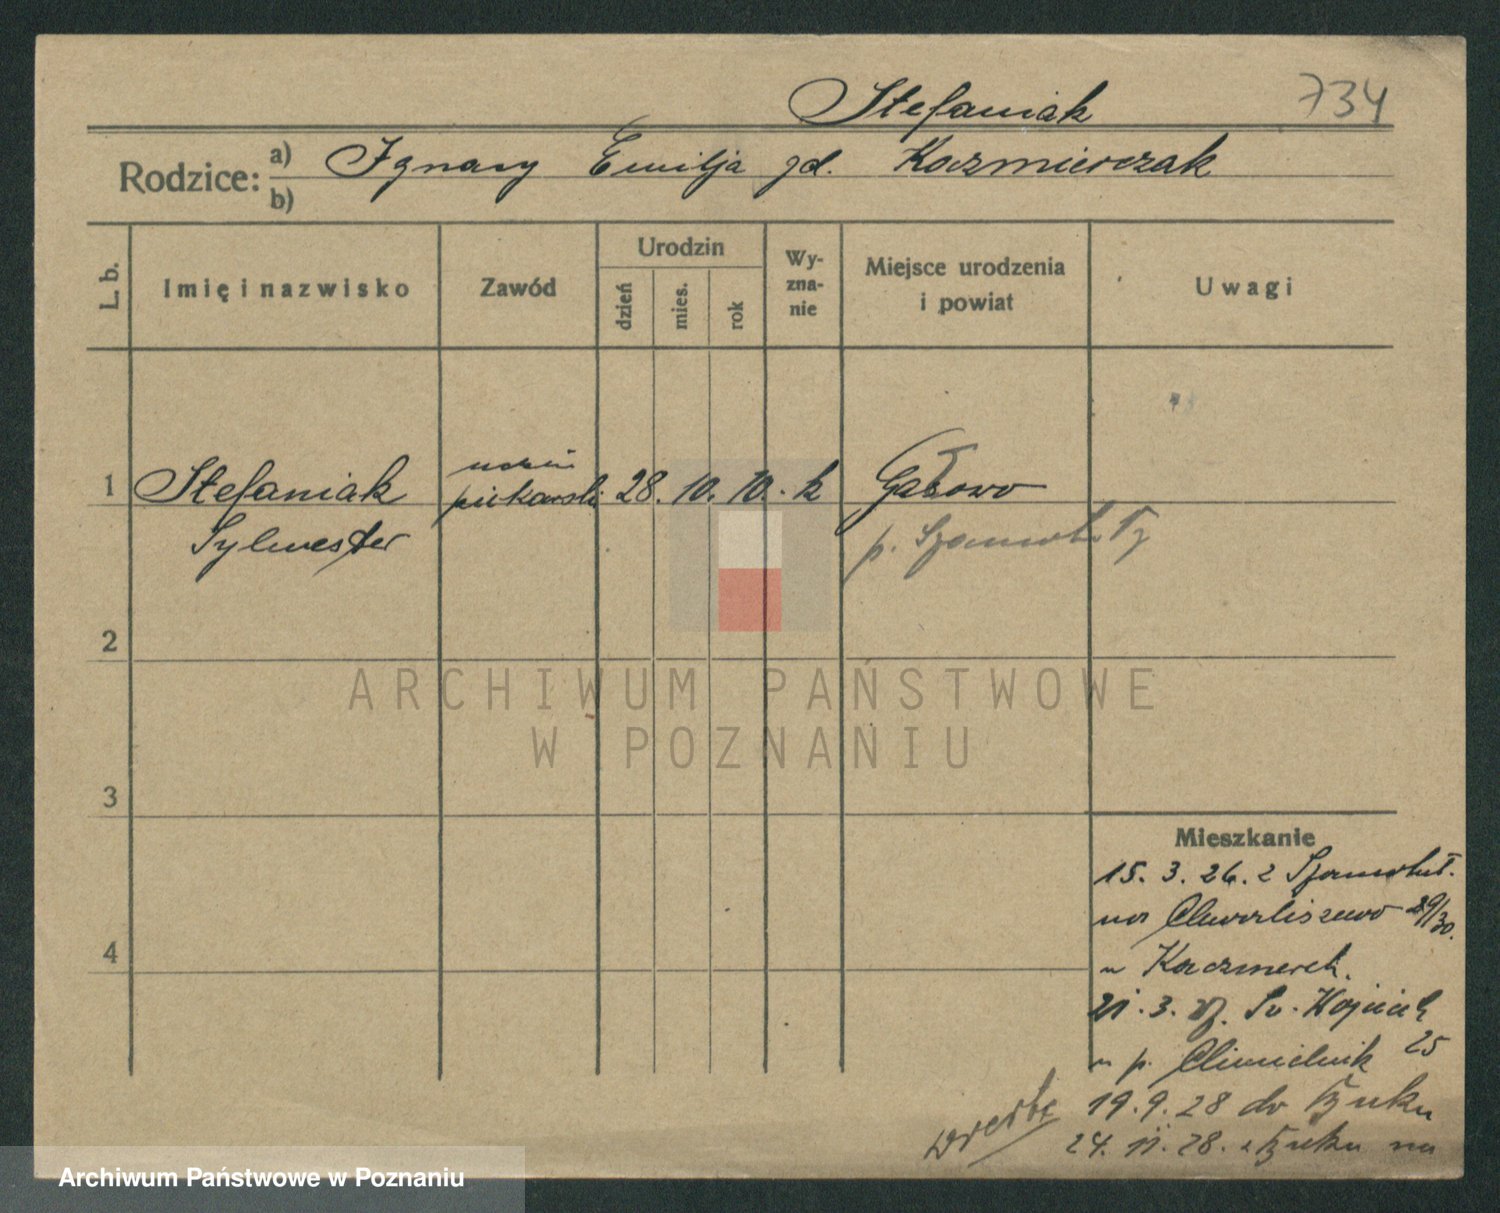 Stefaniak 734
Rodzice: a) Ignacy Emilja zd. Kaźmierczak
b)
L. b.
Imię i nazwisko
Zawód
Urodzin
dzień
mies.
rok
Wy-
zna-
nie
Miejsce urodzenia
i powiat
Uwagi
1 Stefaniak uczeń piekarski 28. 10. 10. k Gałowo
Sylwester p. Szamotuły
2
3
4
Mieszkanie
15. 3. 26. z Szamotuł.
na Chwaliszewo 29/30.
u Kaczmarek.
21. 3. 27. Św. Wojciech 25
u p. Chmielnik
19. 9. 28 do Buku
24. 11. 28. z Buku na
ARCHIWUM PAŃSTWOWE
W POZNANIU
Archiwum Państwowe w Poznaniu